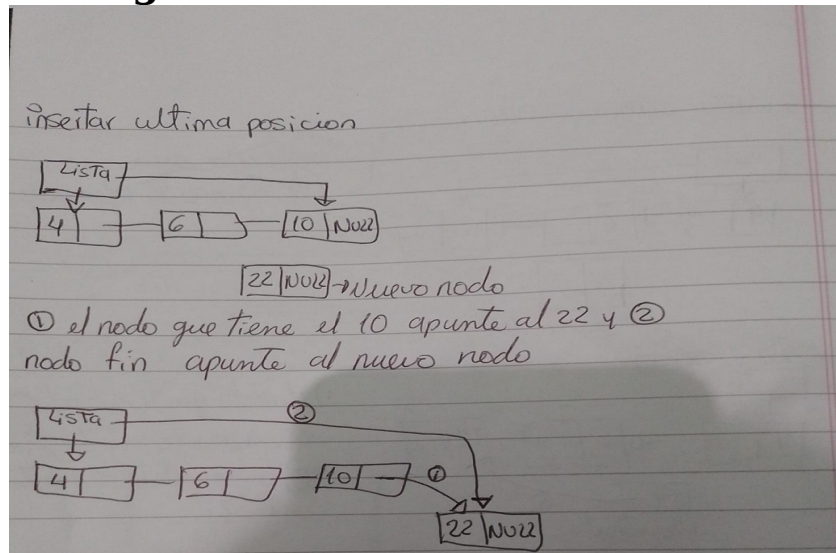 insertar ultima posicion
Lista
4 6 10 NULL
22 NULL → Nuevo nodo
① el nodo que tiene el 10 apunte al 22 y ②
nodo fin apunte al nuevo nodo
Lista ②
4 6 10 ①
22 NULL